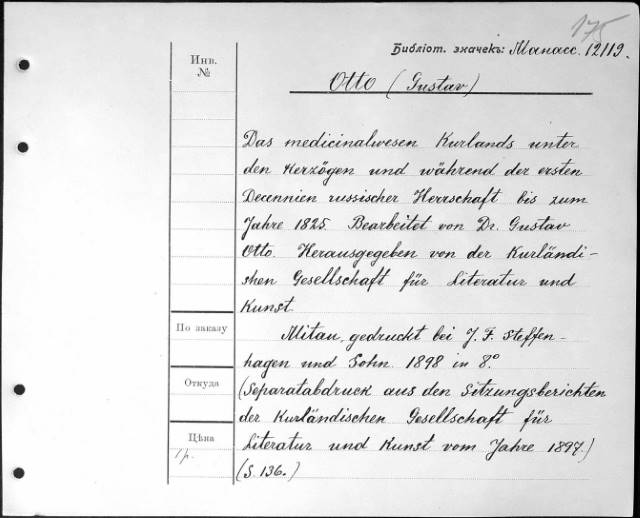 175
Библіот. значекъ: Манасс. 12/19.
Инв.
№
Otto (Gustav)
Das medicinalwesen Kurlands unter
den Herzögen und während der ersten
Decennien russischer Herrschaft bis zum
Jahre 1825. Bearbeitet von Dr. Gustav
Otto. Herausgegeben von der Kurländi-
shen Gesellschaft für Literatur und
Kunst.
По заказу
Mitau, gedruckt bei J. F. Steffen-
hagen und Sohn. 1898 in 8°.
Откуда
(Separatabdruck aus den Sitzungsberichten
der Kurländischen Gesellschaft für
Цѣна
1 р.
Literatur und Kunst vom Jahre 1897.)
(S. 136.)